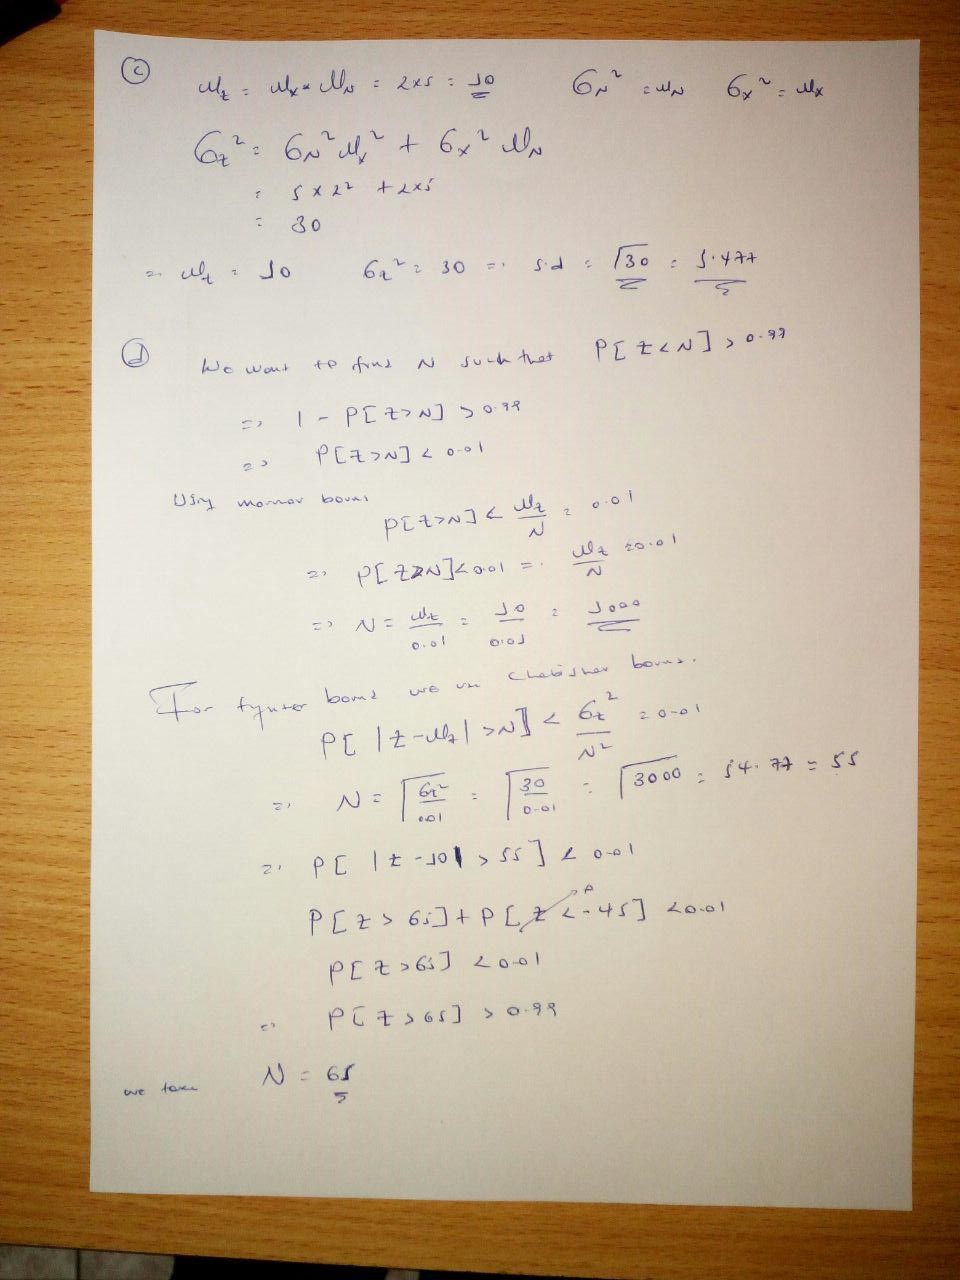 (c) μz = μx * μN = 2x5 = 10 σN² = μN σx² = μx
σz² = σN² μx² + σx² μN
= 5 x 2² + 2x5
= 30
=> μz = 10 σz² = 30 => s.d = √30 = 5.477
(d) We want to find N such that P[Z<N] > 0.99
=> 1 - P[Z>N] > 0.99
=> P[Z>N] < 0.01
Using bound
P[Z>N] < μz/N = 0.01
=> P[Z>N] < 0.01 => μz/N = 0.01
=> N = μz/0.01 = 10/0.01 = 1000
For bound we use bound.
P[|Z-μz| >N] < σz²/N² = 0.01
=> N = √(σz²/0.01) = √(30/0.01) = √3000 = 54.77 = 55
=> P[|Z-10| > 55] < 0.01
P[Z > 65] + P[Z < -45] < 0.01
P[Z >65] < 0.01
=> P[Z > 65] > 0.99
we take N = 65